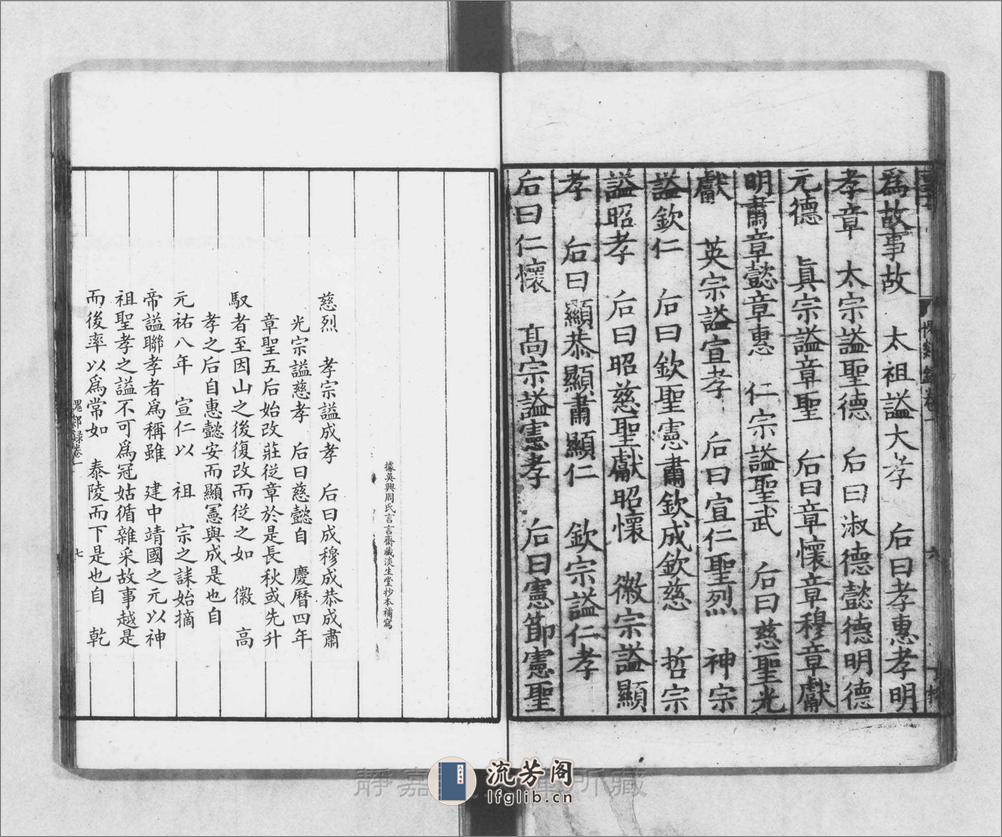 爲故事故　太祖謚大孝　后曰孝惠孝明
孝章　太宗謚聖德　后曰淑德懿德明德
元德　眞宗謚章聖　后曰章懷章穆章獻
明肅章懿章惠　仁宗謚聖武　后曰慈聖光
獻　英宗謚宣孝　后曰宣仁聖烈　神宗
謚欽仁　后曰欽聖憲肅欽成欽慈　哲宗
謚昭孝　后曰昭慈聖獻昭懷　徽宗謚顯
孝　后曰顯恭顯肅顯仁　欽宗謚仁孝
后曰仁懷　高宗謚憲孝　后曰憲節憲聖
據吳興周氏言言齋藏淡生堂抄本補寫
慈烈　孝宗謚成孝　后曰成穆成恭成肅
光宗謚慈孝　后曰慈懿自　慶曆四年
章聖五后始改莊從章於是長秋或先升
馭者至因山之後復改而從之如　徽　高
孝之后自惠懿安而顯憲與成是也自
元祐八年　宣仁以　祖　宗之誄始摘
帝謚聯孝者爲稱雖　建中靖國之元以神
祖聖孝之謚不可爲冠姑循雜采故事越是
而後率以爲常如　泰陵而下是也自　乾
愧郯録卷一
七
流芳阁
lfglib.cn